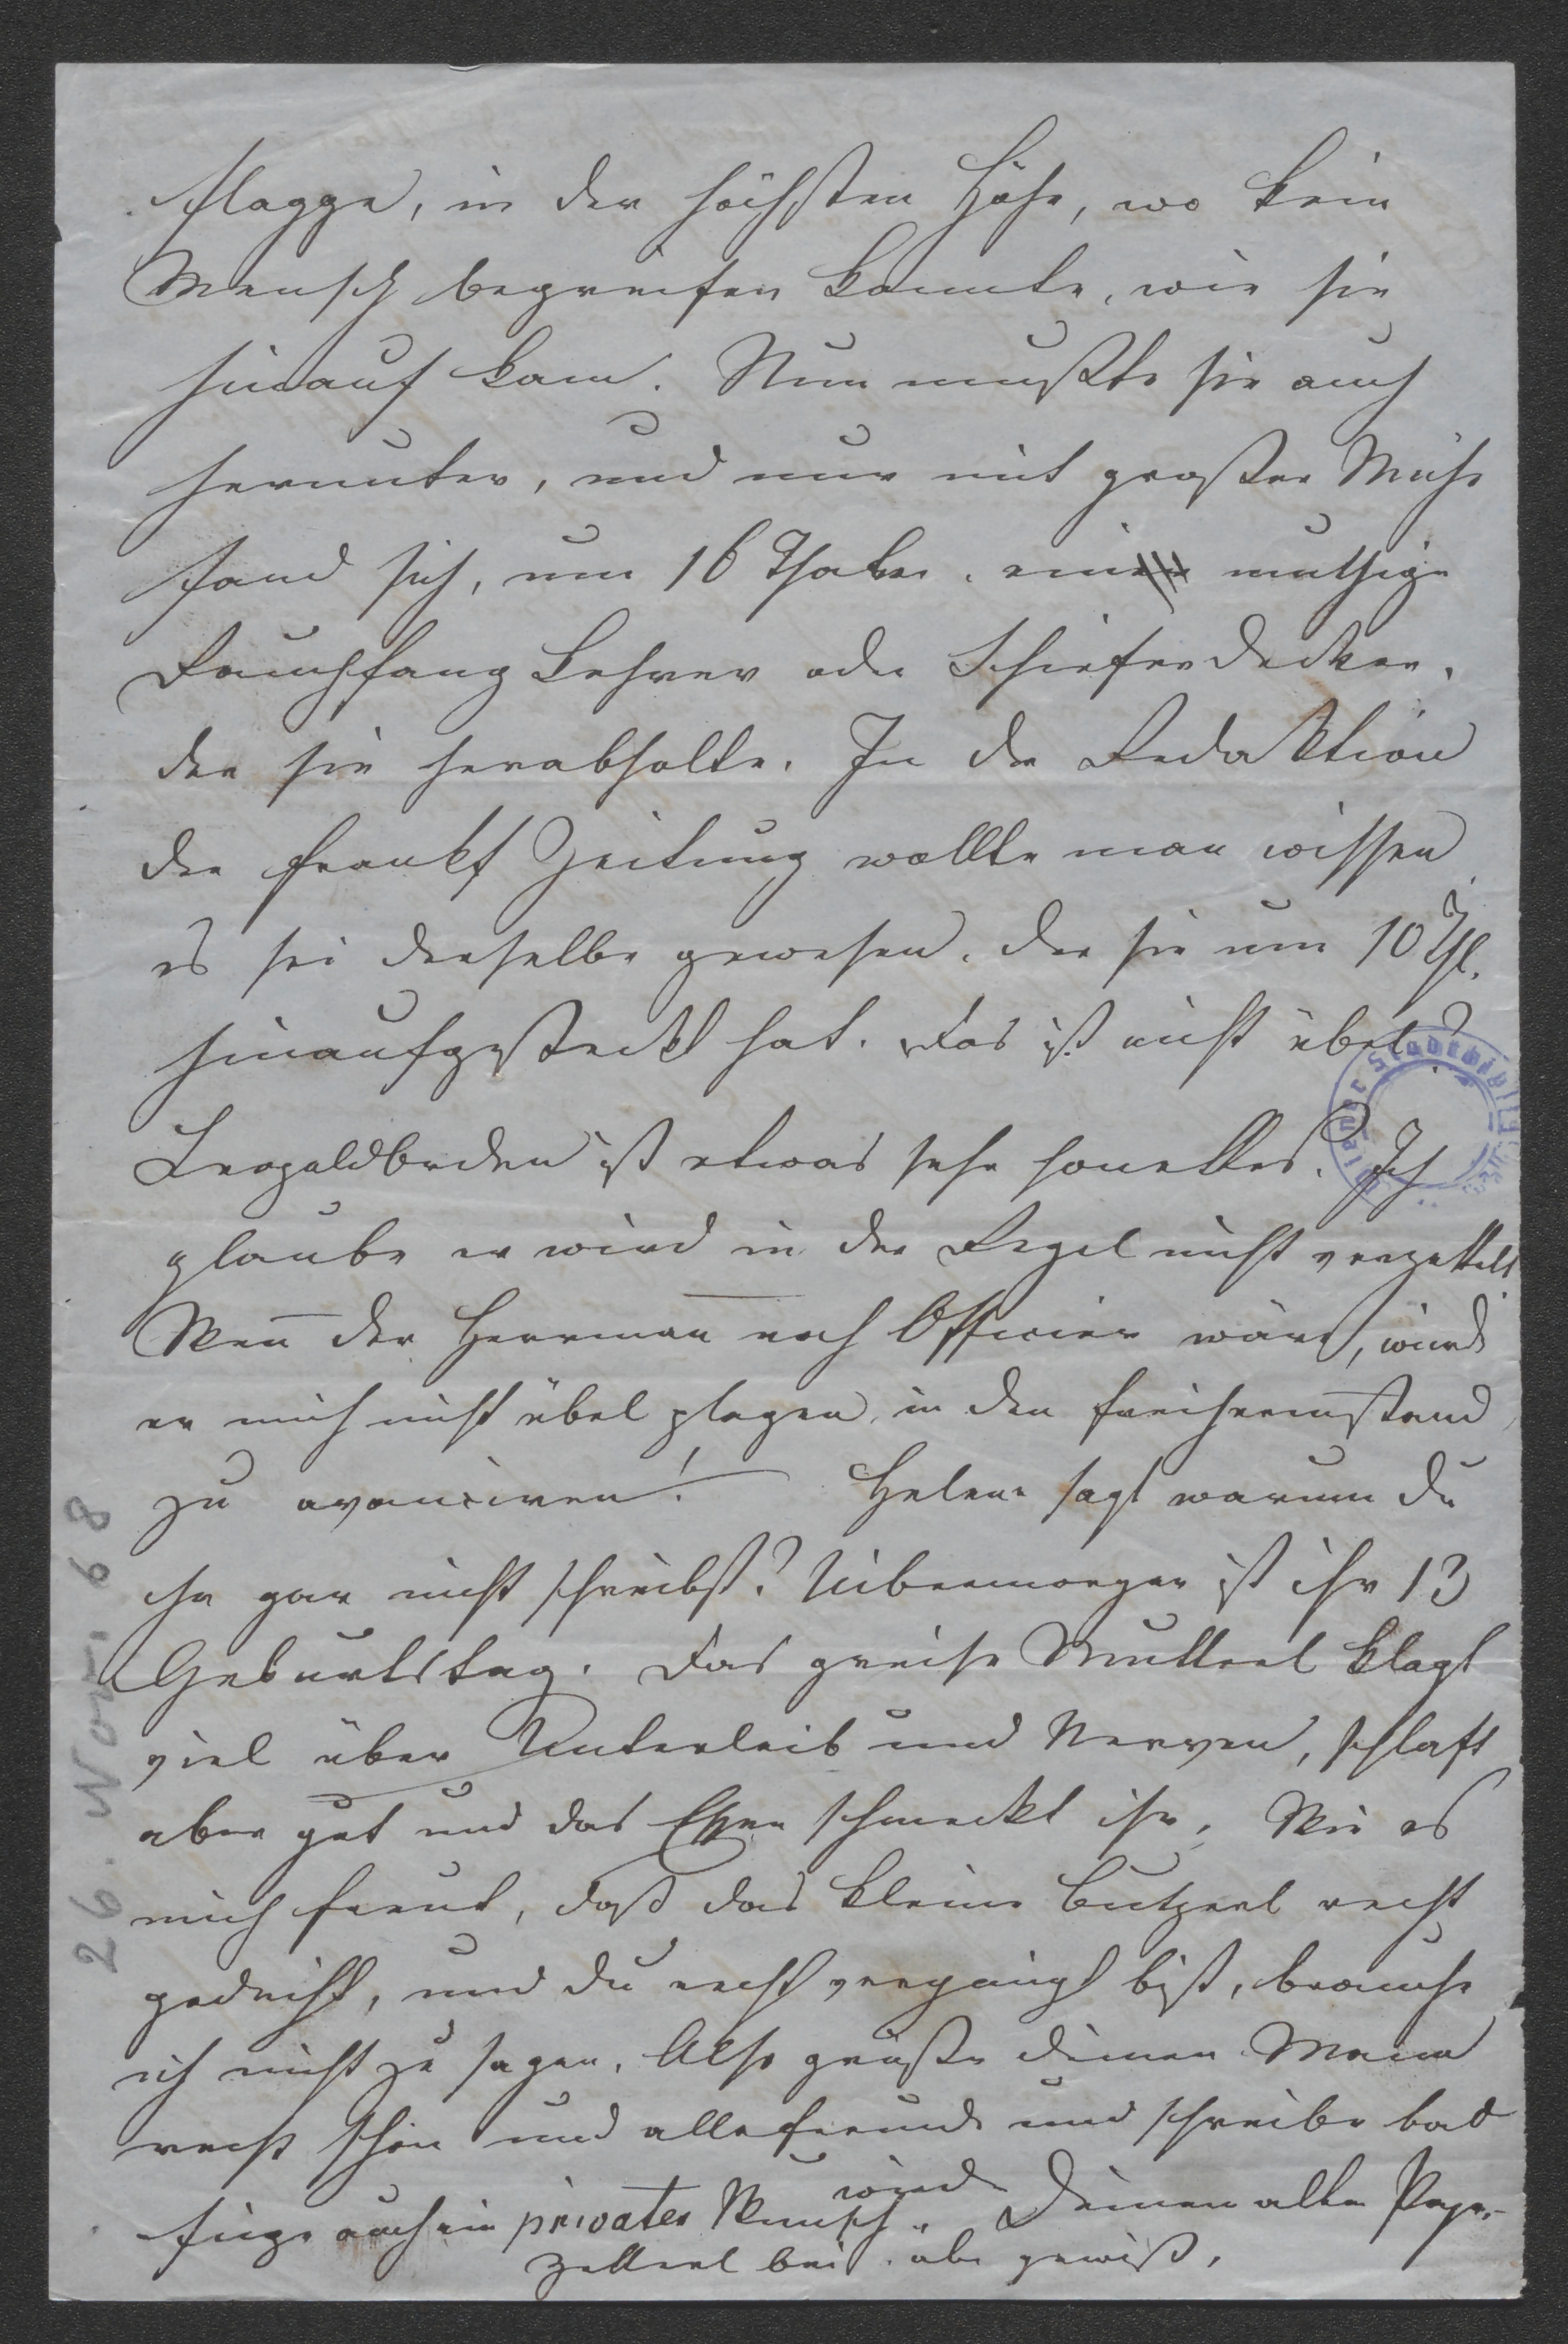 Flagge, in der höchsten Höhe, wo kein
Mensch begreifen konnte, wie sie
hinauf kam. Nun mußte sie auch
herunter, und nur mit großer Mühe
fand sich, um 16 Thaler, ein muthige
Rauchfang Kehrer oder Schieferdecker,
der sie herabholte. In der Redaktion
der frankf Zeitung wollte man wissen
es sei derselbe gewesen, der sie um 10 Thl.
hinaufgesteckt hat. Das ist nicht übel?
Leopoldorden ist etwas sehr honettes. Ich
glaube er wird in der Regel nicht verzettelt
Wenn der Herrman noch Officier wäre, würde
er mich nicht übel plagen, in den Freiherrnstand
zu avanciren! Helene sagt warum du
ihr gar nicht schreibst? Uibermorgen ist ihr 13
Geburtstag. Das greise Mutterl klagt
viel über Unterleib und Nerven, schlaft
aber gut und das Essen schmeckt ihr. Wie es
mich freut, daß das kleine Butzerl recht
gedeiht, und du recht vergnügt bist, brauche
ich nicht zu sagen. Also grüße deinen Mann
recht schön und alle Freunde und schreibe bald
füge auch ein privates Deinen alten Papa-
zetterl bei, aber gewiß.
26. Nov. 68
Wiener Stadtbibliothek